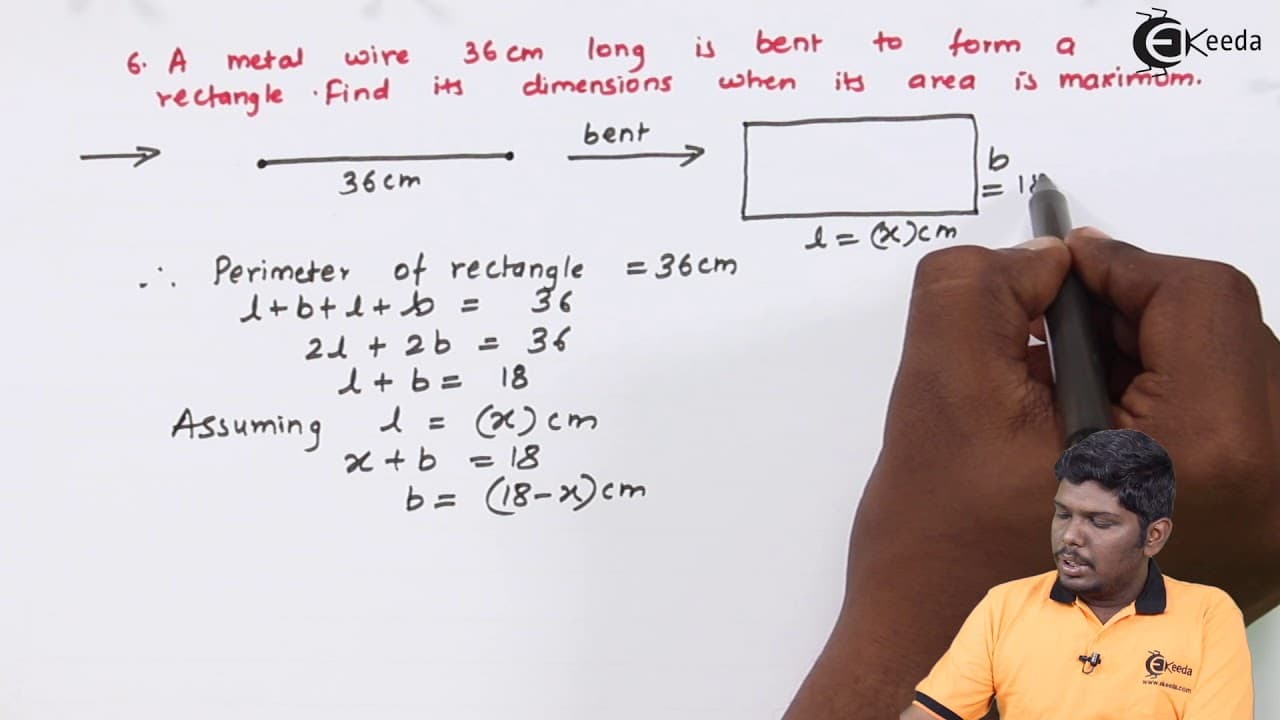 EKeeda
6. A metal wire 36 cm long is bent to form a
rectangle. Find its dimensions when its area is maximum.
36 cm
bent
b
= 18
l = (x) cm
∴ Perimeter of rectangle = 36 cm
l + b + l + b = 36
2l + 2b = 36
l + b = 18
Assuming l = (x) cm
x + b = 18
b = (18 - x) cm
EKeeda
www.ekeeda.com